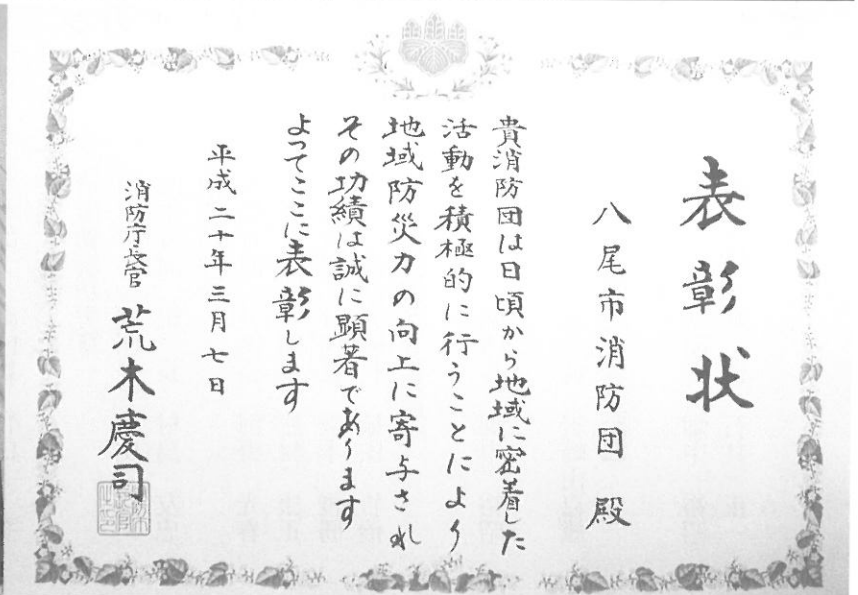 表彰状
八尾市消防団 殿
貴消防団は日頃から地域に密着した
活動を積極的に行うことにより
地域防災力の向上に寄与され
その功績は誠に顕著であります
よってここに表彰します
平成二十年三月七日
消防庁長官 荒木慶司